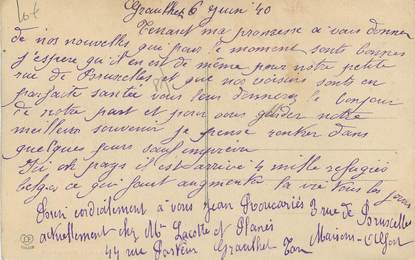 Lot
Graulhet 6 juin 40
Tenant ma promesse a vous donner
de nos nouvelles que pour le moment sont bonnes
j'espère qu'il en est de même pour notre petite
rue de Bruxelles et que nos voisins sont en
parfaite santée vous leur donnerez le bonjour
de notre part et pour vous garder notre
meilleur souvenir je pense rentrer dans
quelques jours sauf imprévu
Ici au pays il est arrivé 4 mille refugiés
belges ce qui fait augmenter la vie tous les jours
bien cordialement a vous Jean Roucariès 3 rue de Bruxelles
actuellement chez Mme Lacotte et Planès Maisons-Alfort
44 rue Pasteur Graulhet Tarn